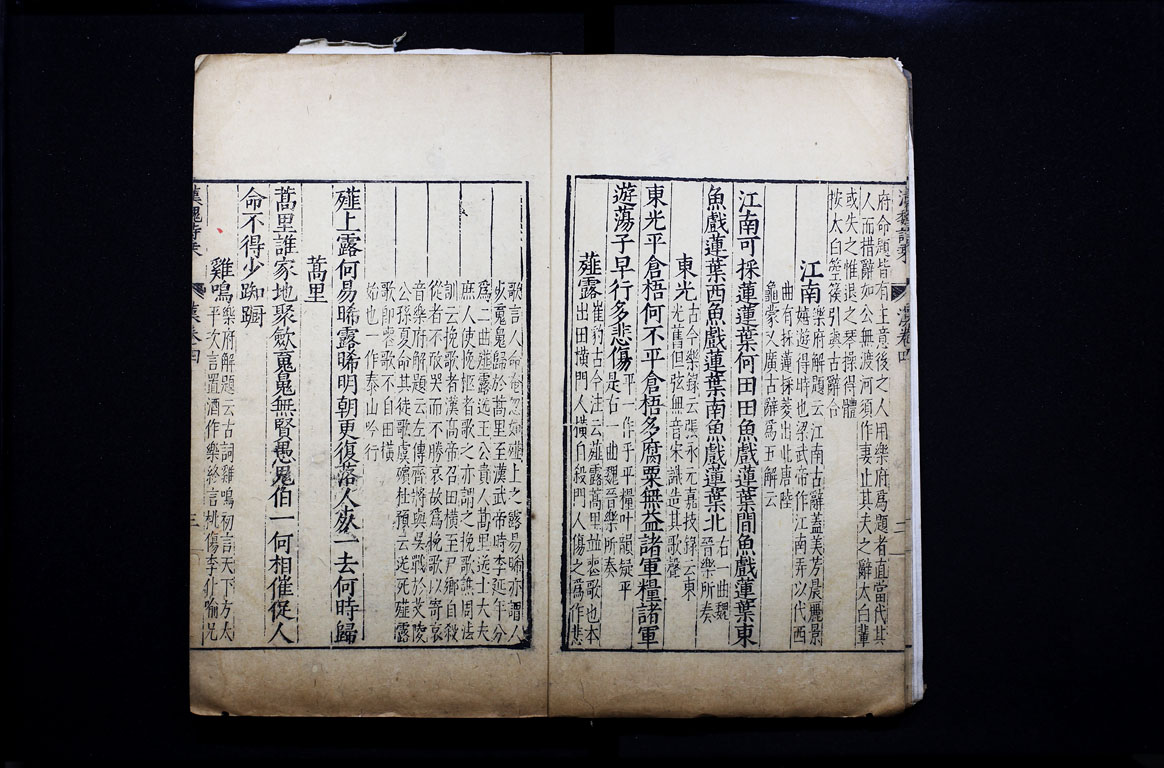 漢魏詩乘
漢卷四
二
府命題皆有主意後之人用樂府爲題者直當代其
人而措辭如公無渡河須作妻止其夫之辭太白輩
或失之惟退之琴操得體
按太白箜篌引與古辭合
江南
樂府解題云江南古辭蓋美芳晨麗景
嬉遊得時也梁武帝作江南弄以代西
曲有採蓮採菱出此唐陸
龜蒙又廣古辭爲五解云
江南可採蓮蓮葉何田田魚戲蓮葉間魚戲蓮葉東
魚戲蓮葉西魚戲蓮葉南魚戲蓮葉北
右一曲魏
晉樂所奏
東光
古今樂錄云張永元嘉技錄云東
光舊但弦無音宋識造其歌聲
東光平倉梧何不平倉梧多腐粟無益諸軍糧諸軍
遊蕩子早行多悲傷
平一作乎平糧叶韻疑平
是右一曲魏晉樂所奏
薤露
崔豹古今注云薤露蒿里並喪歌也本
出田橫門人橫自殺門人傷之爲作悲
歌言人命奄忽如薤上之露易晞亦謂人
死䰟魄歸於蒿里至漢武帝時李延年分
爲二曲薤露送王公貴人蒿里送士大夫
庶人使挽柩者歌之亦謂之挽歌譙周法
訓云挽歌者漢高帝召田橫至尸鄉自殺
從者不敢哭而不勝哀故爲挽歌以寄哀
音樂府解題云左傳齊將與吳戰於艾陵
公孫夏命其徒歌虞殯杜預云送死薤露
歌即喪歌不自田橫
始也一作泰山吟行
薤上露何易晞露晞明朝更復落人死一去何時歸
蒿里
蒿里誰家地聚斂䰟魄無賢愚鬼伯一何相催促人
命不得少踟躕
雞鳴
樂府解題云古詞雞鳴初言天下方太
平次言置酒作樂終言桃傷李仆喻兄
漢魏詩乘
漢卷四
三